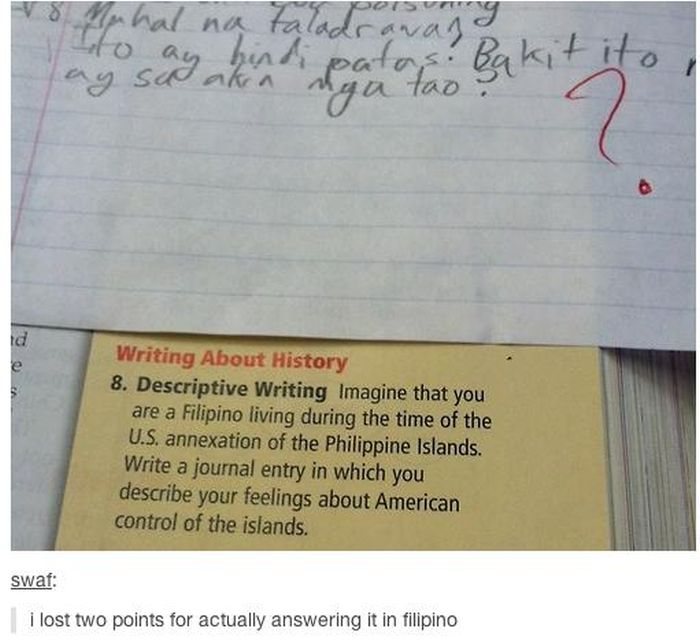 8 Mahal na taladrawan,
Ito ay hindi patas. Bakit ito
ay sa akin mga tao?
?
nd
e
s
Writing About History
8. Descriptive Writing Imagine that you
are a Filipino living during the time of the
U.S. annexation of the Philippine Islands.
Write a journal entry in which you
describe your feelings about American
control of the islands.
swaf:
i lost two points for actually answering it in filipino